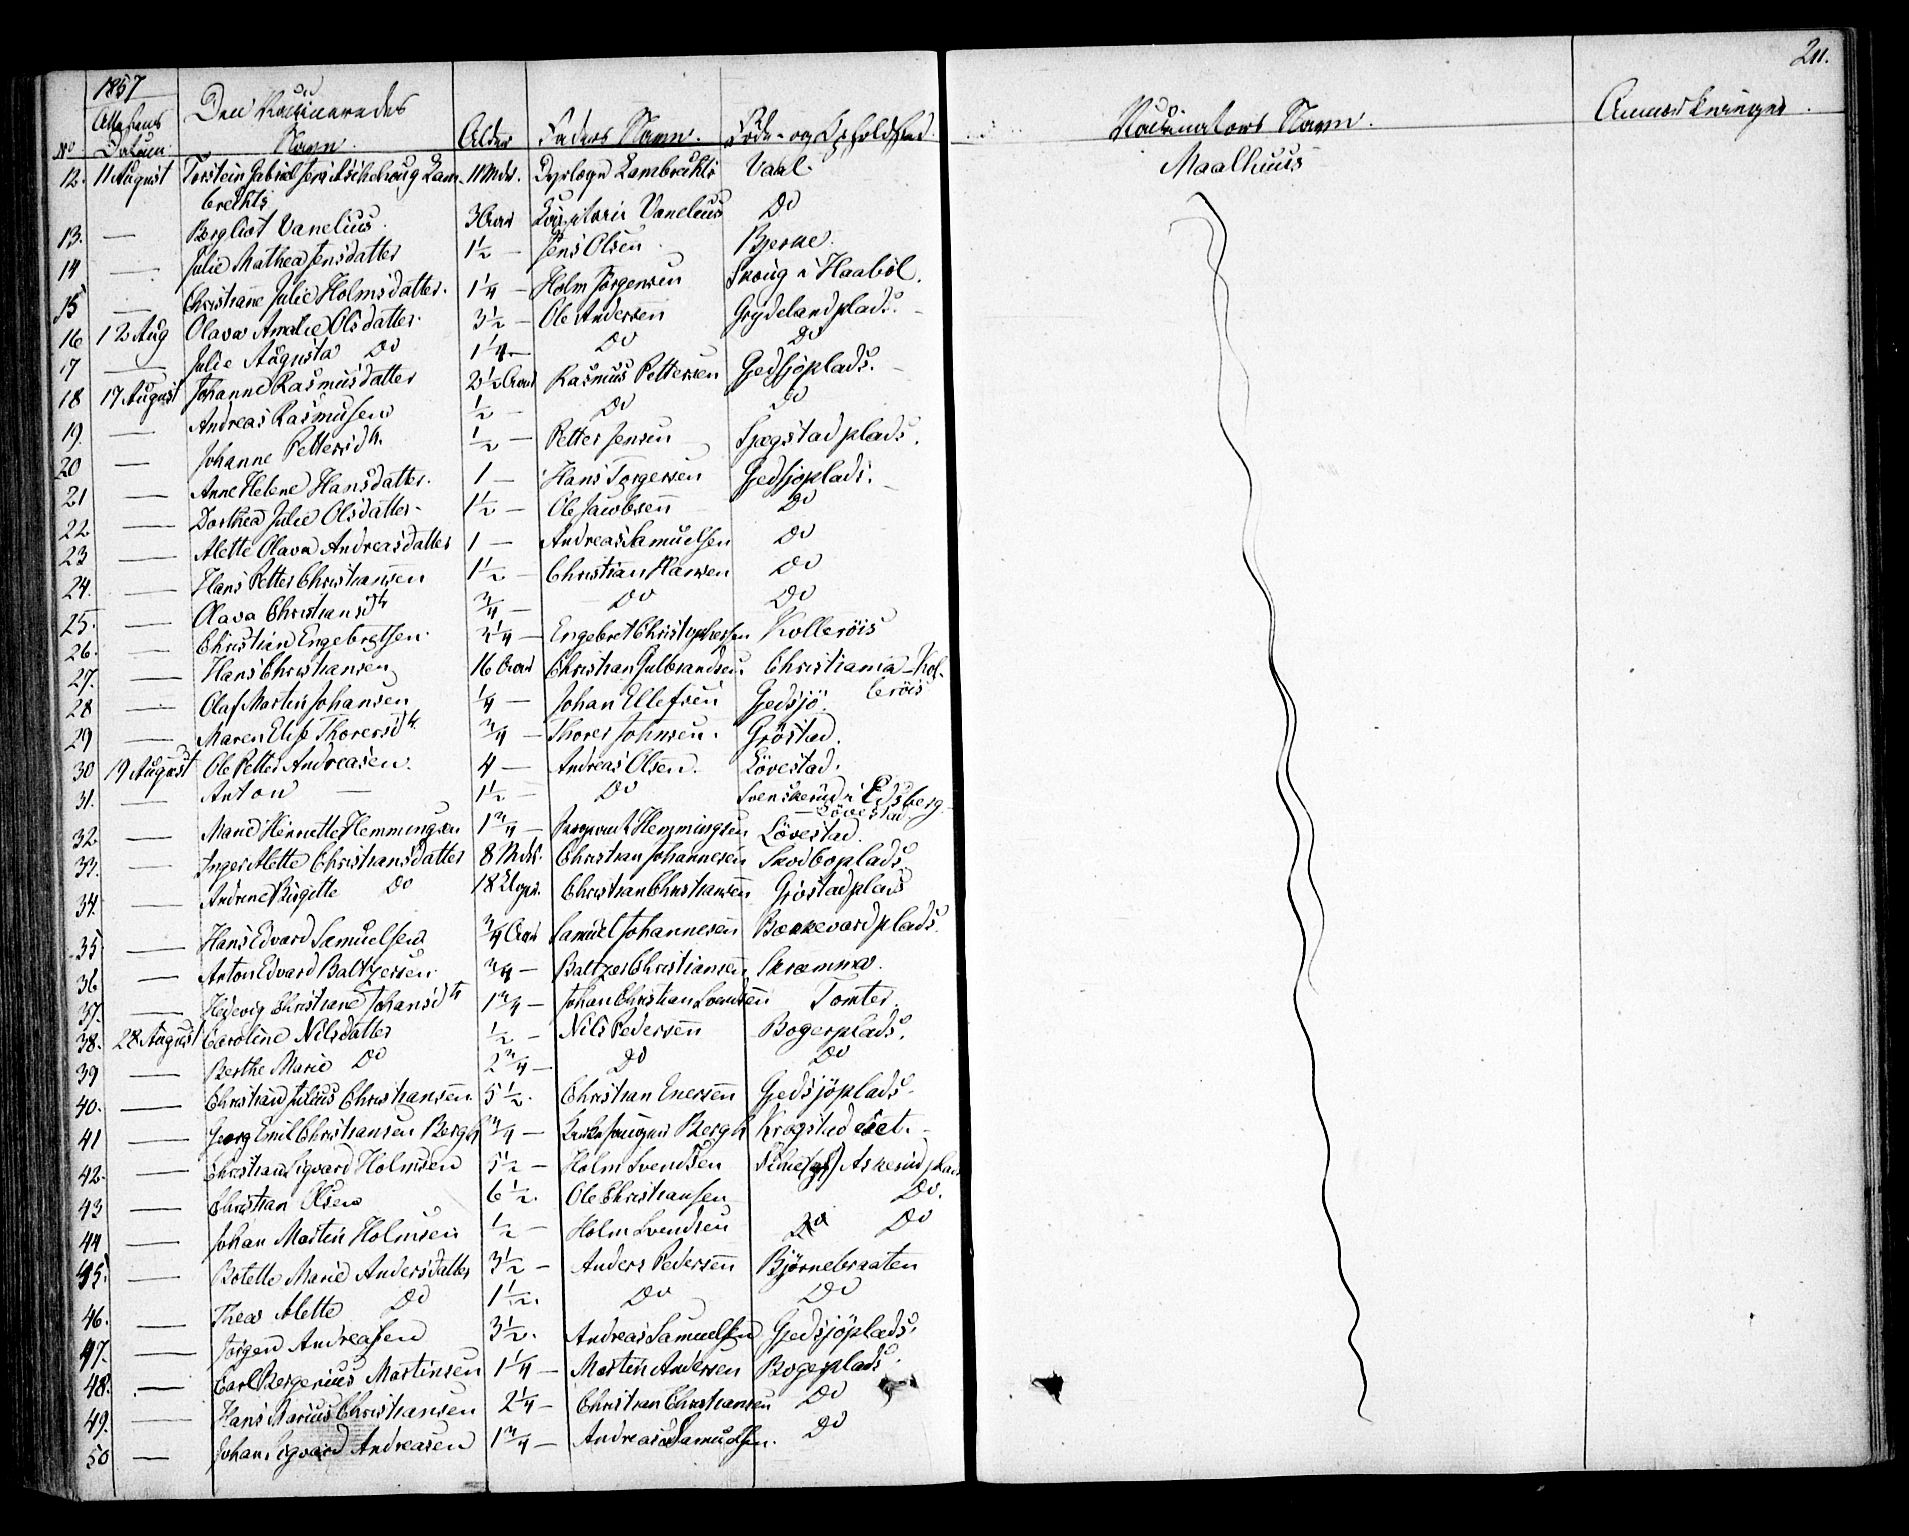 211.
1857
Attestens Datum
No
Den Vaccineredes Navn.
Alder
Faders Navn.
Føde- og Opholdssted.
Vaccinators Navn.
Anmærkninger.
12. 11 August Torstein Gabriel Lam- 11 Mdr. Dyrlæge Lambrechts Vaal Maalhuus
brechts
13. — Bergliot Vanelius. 3 Aar Vanelius Do
14 — Julie Mathea Jensdatter 1½ — Jens Olsen Bjerke.
15 — Christiane Julie Holmsdatter. 1¼ — Holm Jørgensen Skoug i Haaböl.
16 12 Aug Olava Amalie Olsdatter. 3½ — Ole Andersen Grydelandplads.
17 — Julie Augusta Do 1¼ — Do Do
18 17 August Johanne Rasmusdatter 2½ Aar Rasmus Pettersen Gjedsjöplads.
19. — Andreas Rasmusen ½ — Do Do
20 — Johanne Pettersdtr. ½ — Petter Jensen plads.
21 — Anne Helene Hansdatter. 1 — Hans Torgersen Gjedsjöplads.
22 — Dorthea Julie Olsdatter 1½ — Ole Jacobsen Do
23 — Alette Olava Andreasdatter 1 — Andreas Samuelsen Do
24. — Hans Petter Christiansen 1½ — Christian Hansen Do
25. — Olava Christiansdtr ¾ — Do Do
26. — Christian Engebretsen. ¼ — Engebret Christophersen Kolleröis
27. — Hans Christiansen 16 Aar Christian Gulbrandsen Christiania - Kol-
leröis
28 — Olaf Martin Johansen ¼ — Johan Ellefsen Gjedsjö.
29 — Maren Elise Thorersdtr. ¾ — Thorer Johnsen. Gröstad.
30 19 August Ole Petter Andreasen. 4 — Andreas Olsen. Lövestad.
31. — Anton — 1½ — Do Svenskerud i Edsberg
— Lövestad
32 — Marie Hennette Hemmingsen 1¾ — Hemmingsen Lövestad.
33. — Inger Alette Christiansdatter 8 Mdr. Christian Johannesen Skodboplads.
34. — Andrine Birgitte Do 18 Uger. Christian Christiansen Gröstadplads
35 — Hans Edvard Samuelsen ¾ Aar Samuel Johannesen Bækkevardplads.
36 — Anton Edvard Baltzersen. ¾ — Baltzer Christiansen Skramma.
37. — Hedevig Christiane Johansdtr 1¾ — Johan Christian Svendsen Tomter.
38. 28 August Caroline Nilsdatter ½ — Nils Pedersen Bogerplads.
39 — Berthe Marie Do 2¾ — Do Do
40. — Christian Julius Christiansen 5½. Christian Enersen Gjedsjöplads.
41 — Georg Emil Christiansen Bergh ¾ — Kirkesanger Bergh Kragstad
42. — Christian Sigvard Holmsen 5½ — Holm Svendsen Askerud plads
43 — Christian Olsen 6½. Ole Christiansen Do.
44 — Johan Martin Holmsen ½ — Holm Svendsen Do Do
45. — Botelle Marie Andersdatter 3½ — Anders Pedersen Björnebraaten
46. — Thea Alette Do 1½. Do Do
47. — Jörgen Andreasen 3½. Andreas Samuelsen Gjedsjöplads.
48. — Carl Bergerius Martinsen 1¼ — Martin Andersen Bogerplads.
49. — Hans Marius Christiansen 2¼ — Christian Christiansen Do
50 — Johan Sigvard Andreasen 1¾ — Andreas Samuelsen. Do